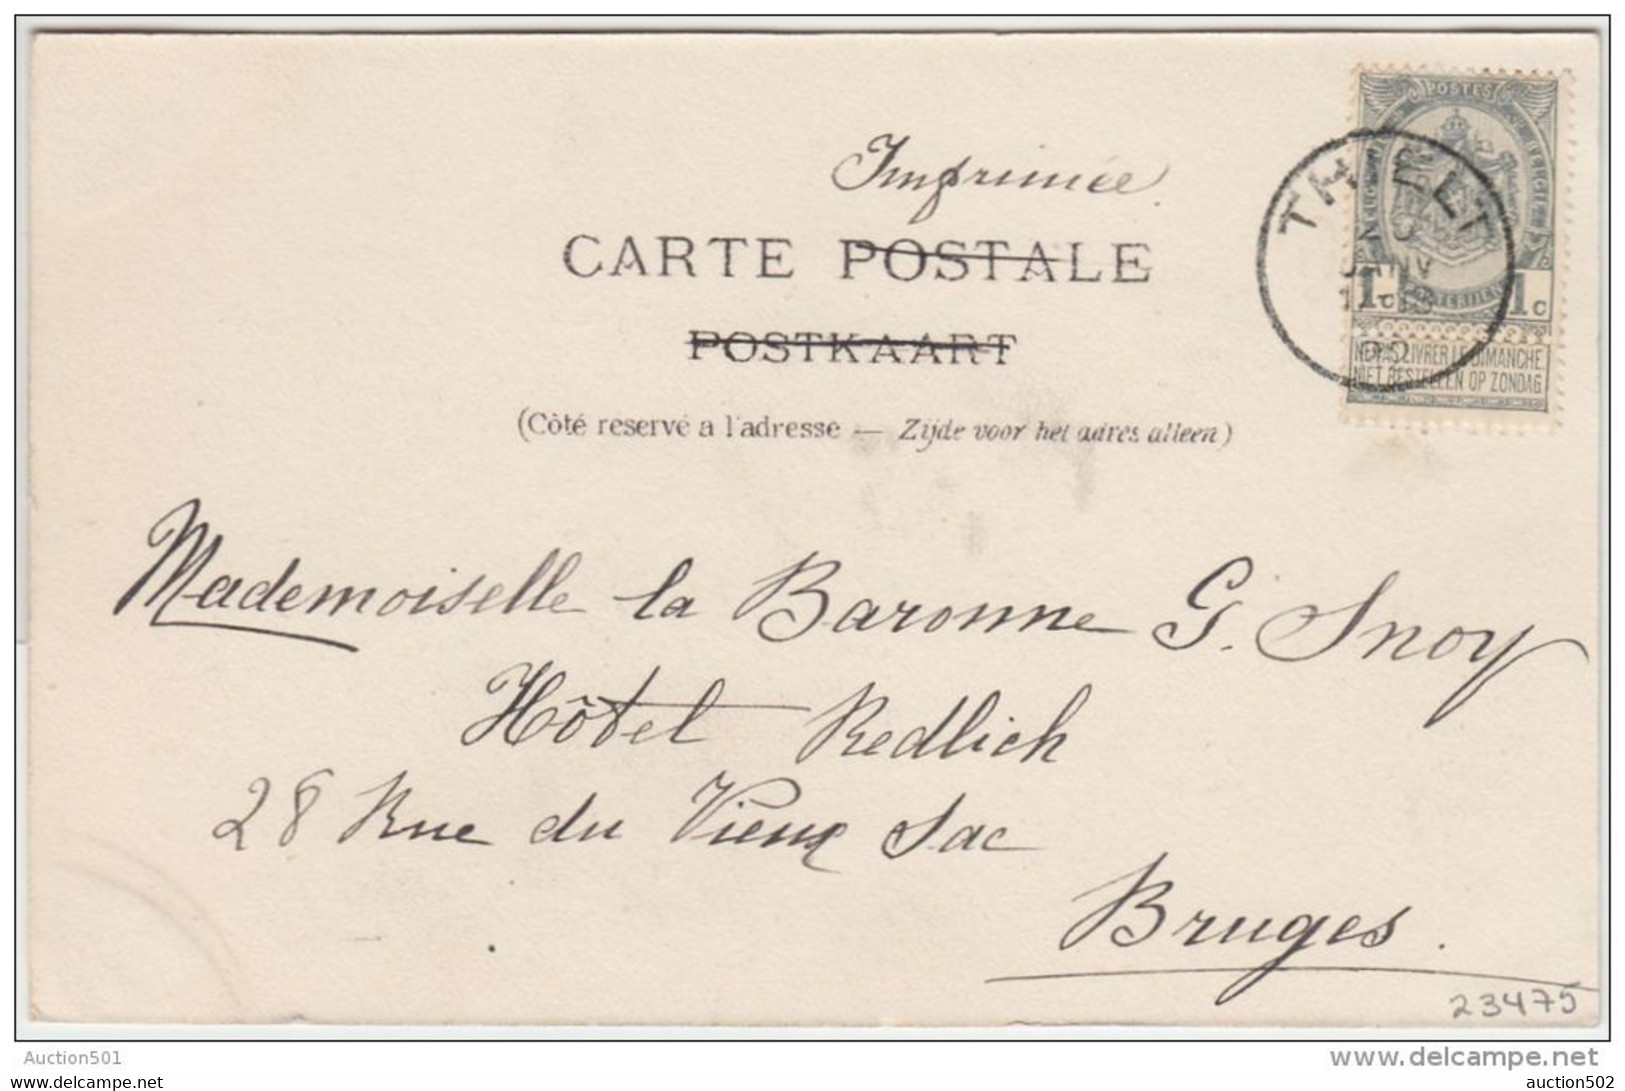 Imprimée
CARTE POSTALE
POSTKAART
(Côté reservé a l'adresse — Zijde voor het adres alleen)
POSTES
THIELT
JANV
1c 1c
NE PAS LIVRER LE DIMANCHE
NIET BESTELLEN OP ZONDAG
Mademoiselle la Baronne G. Snoy
Hôtel Redlich
28 Rue du Vieux Sac
Bruges.
23475
Auction501
www.delcampe.net
auction501.delcampe.com
auction502